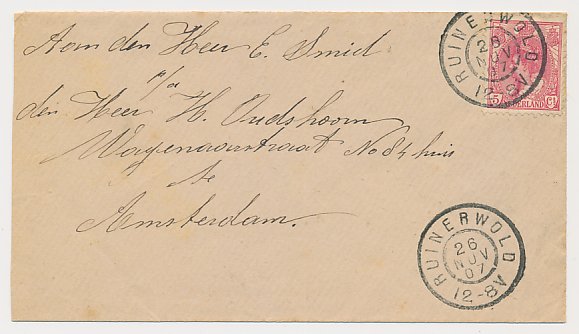 Aan den Heer E. Smid
p/a
den Heer H. Oudshoorn
Wagenaarstraat No 84 huis
te
Amsterdam.
RUINERWOLD
26
NOV
07
12-8V
5 NEDERLAND CT
RUINERWOLD
26
NOV
07
12-8V